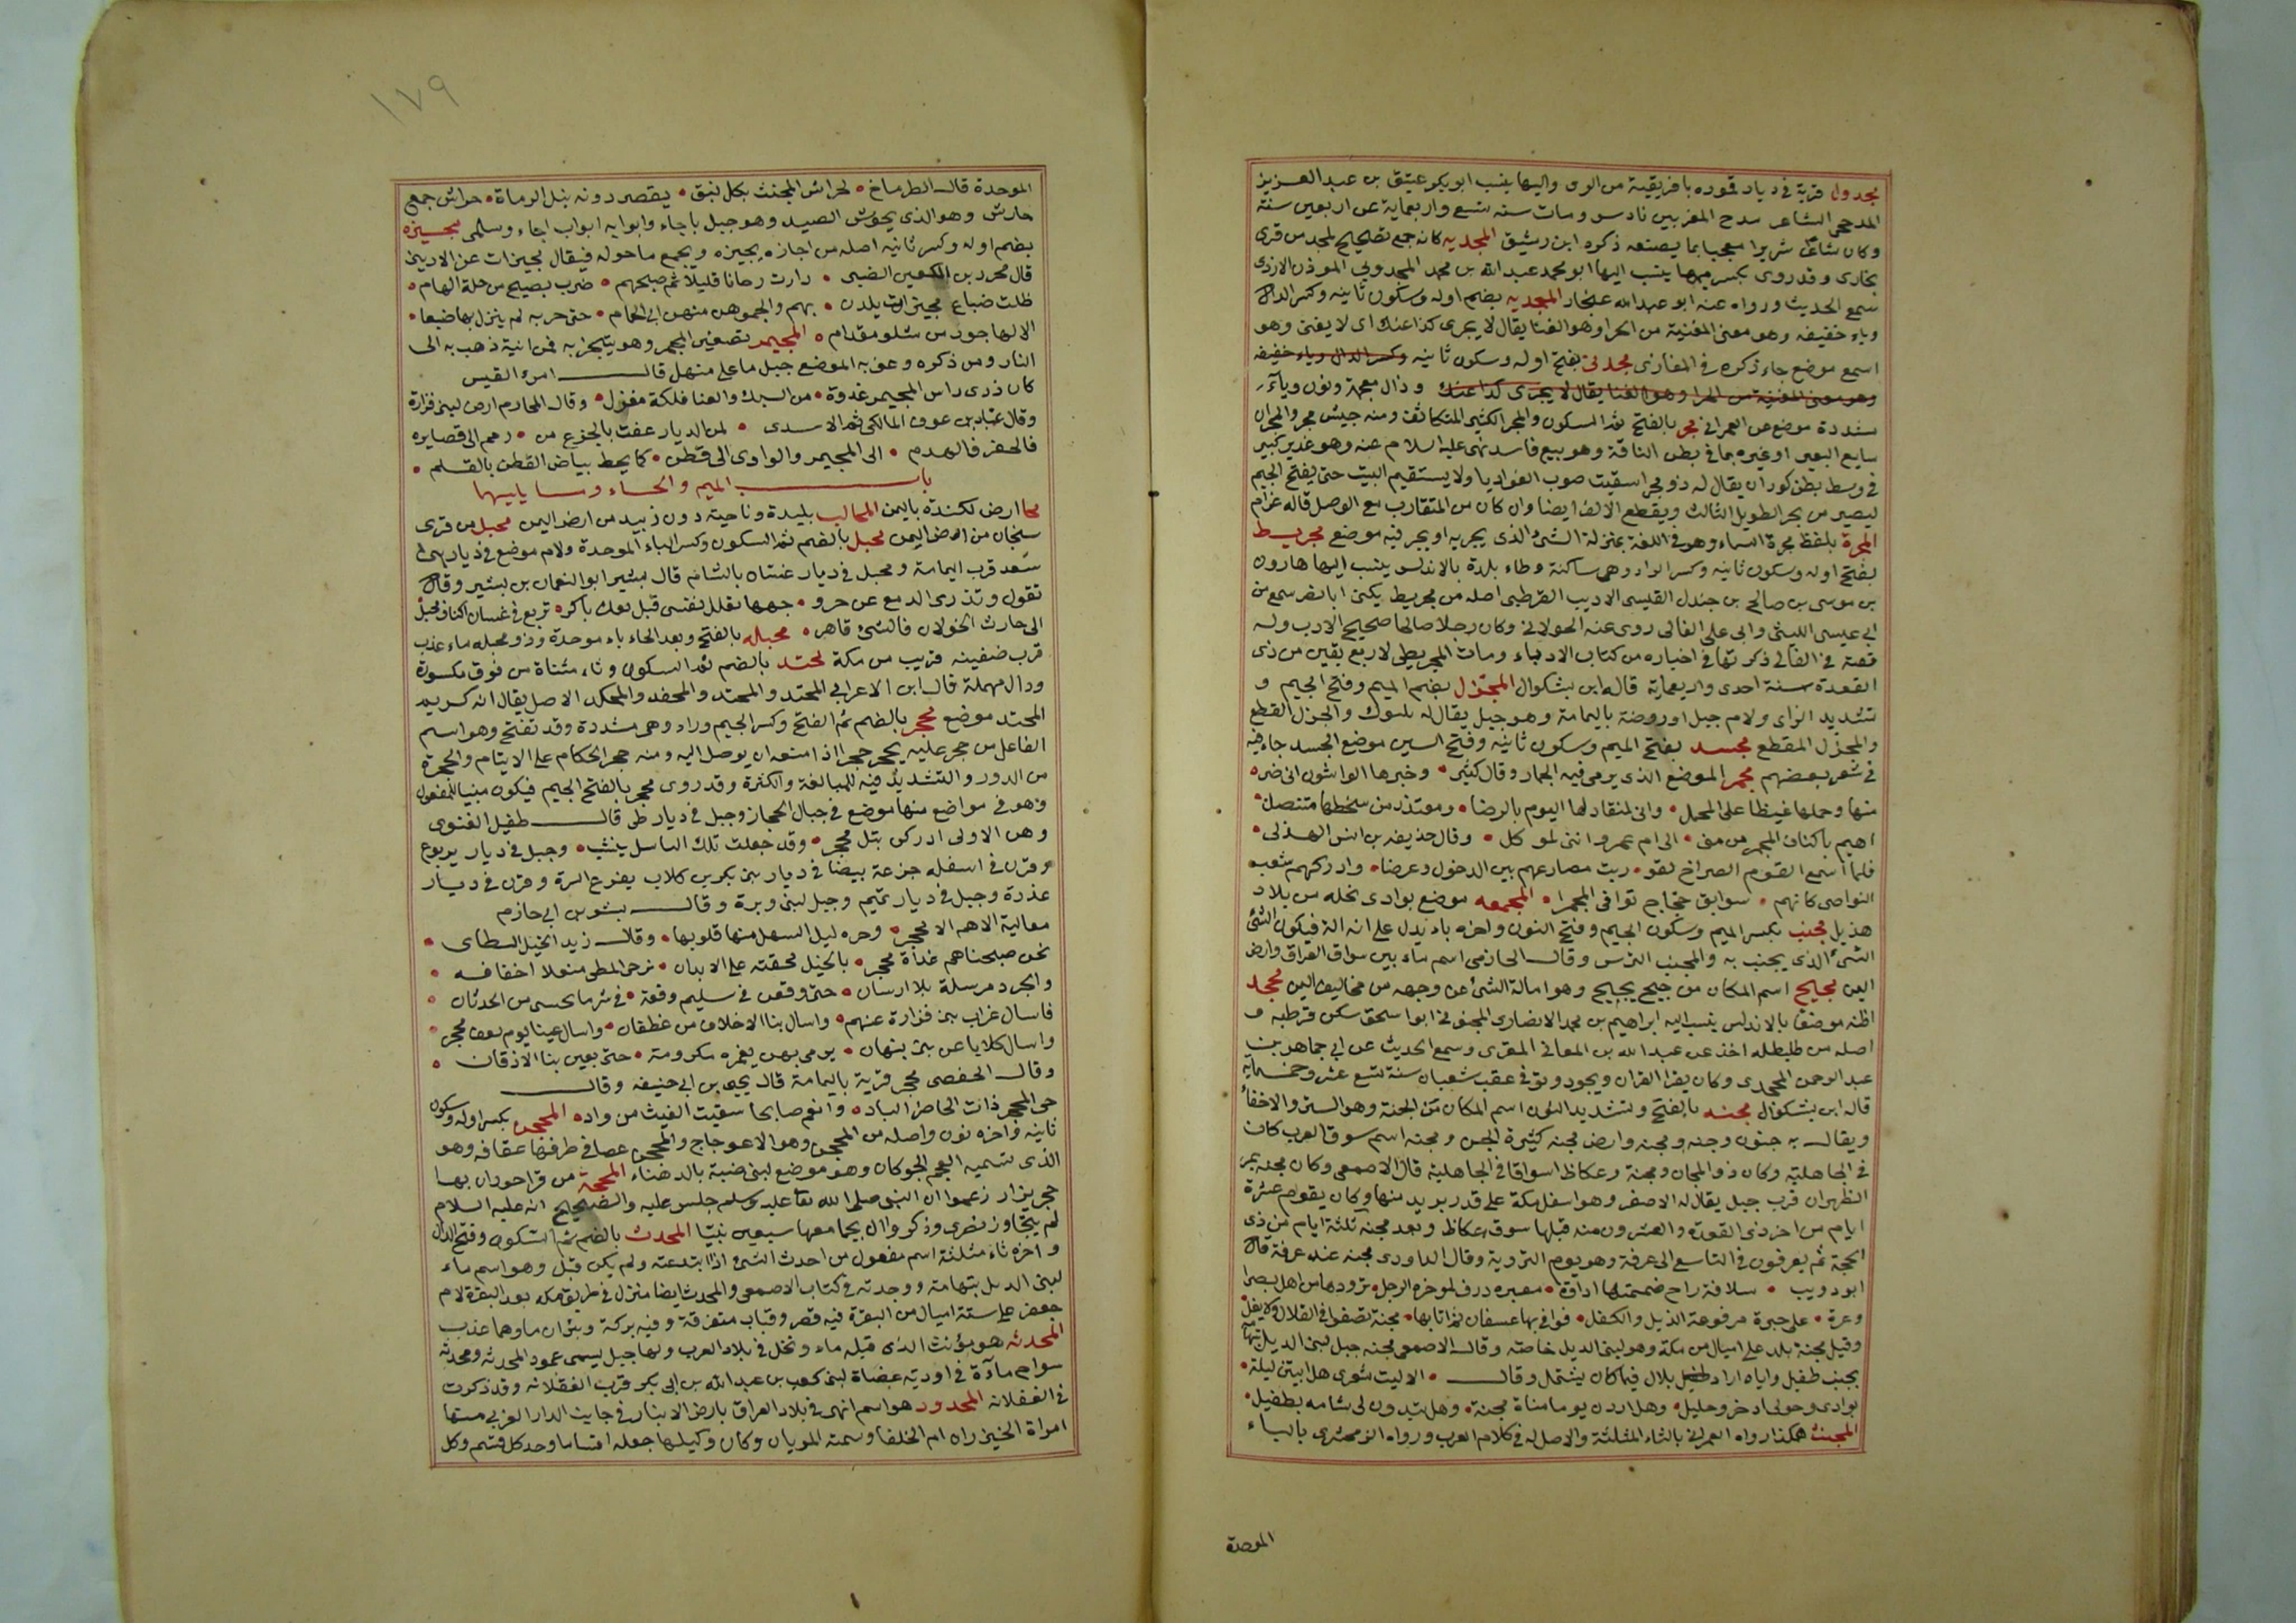 مجدول قرية في ديار قموده بافريقية من الوى واليها ينسب ابو بكر عتيق بن عبد العزيز
المدحجي الشاعر مدح المعز بين نادس ومات سنه تسع واربعماية عن اربعين سنة
وكان شاعرا شريرا معجبا بما يصنعه ذكره ابن رشيق المجديه كانه جمع تصحيح لمجد من قرى
بخارى وقد روى بكسر ميمها ينسب اليها ابو محمد عبد الله بن محمد المجدوني الموذن الازدى
سمع الحديث ورواه عنه ابو عبد الله غنجار المجديه بضم اوله وسكون ثانيه وكسر الدال
وياء خفيفه وهو معنى المغنية من الجرا وهو الغنا يقال لا يجرى كذا عنك اى لا يغنى وهو
اسمع موضع جاء ذكره في المغازى مجدنى بفتح اوله وسكون ثانيه وكسر الدال وياء خفيفه
وهو معنى المغنية من الجرا وهو الغنا يقال لا يجزى كذا عنك وذال معجمة ونون وياء
مشددة موضع عن العمرانى مجر بالفتح ثم السكون والمجر الكثير المتكاثف ومنه جيش مجر والمجر ان
يبايع البعير او غيره بما في بطن الناقة وهو بيع فاسد نهى عليه السلام عنه وهو غدير كبير
في وسط بطن كور ان يقال له ذو مجر اسقيت صوب الغواديا ولا يستقيم البيت حتى يفتح الجيم
ليصير من بحر الطويل الثالث ويقطع الالف ايضا وان كان من المتقارب مع الوصل قاله غرام
المجرة بلفظ مجرة السماء وهو في اللغة بمنزلة الشئ الذى يجريه او يجر فيه موضع مجريط
بفتح اوله وسكون ثانيه وكسر الراء وهى ساكنة وطاء بلدة بالاندلس ينسب اليها هارون
بن موسى بن صالح بن جندل القيسى الاديب القرطبى اصله من مجريط يكنى ابا نصر سمع من
ابى عيسى الليثى وابى على القالى روى عنه الخولانى وكان رجلا صالحا صحيح الادب وله
قصة في القالى ذكرتها في اخباره من كتاب الادباء ومات المجريطى لاربع بقين من ذى
القعدة سنة احدى واربعماية قاله ابن بشكوال المجزل بضم الميم وفتح الجيم و
تشديد الزاى ولام جبل او روضة باليمامة وهو جبل يقال له بلبول والجزل القطع
والمجزل المقطع مجسد بفتح الميم وسكون ثانيه وفتح السين موضع الجسد جاء فيه
في شعر بعضهم مجمر الموضع الذى يرمى فيه الجمار وقال كثير • وخبرها الواشون انى ضره
منها وحملها غيظا على المحمل • وانى لمنقاد لها اليوم بالرضا • ومعتذر من سخطها متنصل •
اهيم باكناف المجمر من منى • الى ام عمرو اننى لموكل • وقال حذيفه بن انس الهذلى •
فلما اسمع القوم الصراخ لقو • ريت مصارعهم بين الدخول وعرضا • وادركهم شعب
النواصى كانهم • سوابق حجاج توافى المجمرا • المجمعه موضع بوادى نخله من بلاد
هذيل مجنب بكسر الميم وسكون الجيم وفتح النون واخره باء يدل على انه الة فيكون الشئ
الشئ الذى يجنب به والمجنب الترس وقال الحازمى اسم ماء بين سواق العراق وارض
اليمن مجيح اسم المكان من جيح يجيح وهو امالة الشئ عن وجهه من مخاليف اليمن مجمد
اظنه موضعا بالاندلس ينسب اليه ابراهيم بن محمد الانصارى المجنقونى ابو اسحق سكن قرطبه و
اصله من طليطله اخذ عن عبد الله بن المعافى المقرى وسمع الحديث عن ابى جماهر بن
عبد الرحمن المحجدى وكان يقرا القران ويجود وتوفى عقب شعبان سنة تسع عشر وخمسماية
قاله ابن بشكوال مجنه بالفتح وتشديد النون اسم المكان من الجنة وهو الستر والاخفاء
ويقال به جنون وجنه ومجنه وارض مجنه كثيرة الجن ومجنه اسم سوق العرب كان
في الجاهلية وكان ذو المجاز ومجنة وعكاظ اسواقا في الجاهلية قال الاصمعى وكان مجنه بمر
الظهران قرب جبل يقال له الاصفر وهو اسفل مكة على قدر بريد منها وكان يقوم عشرة
ايام من اخر ذى القعدة والعشرون منه قبلها سوق عكاظ وبعد مجنه ثلثة ايام من ذى
الحجة ثم يعرفون في التاسع الى عرفة وهو يوم التروية وقال الداودى مجنه عند عرفة قال
ابو ذويب • سلافة راح ضمنتها اداوة • مقيره ردف لموخرة الرحل • تزودها من اهل بصرا
وغزة • على جسرة مرفوعة الذيل والكفل • فوافى بها عسفان ثم اتا بها • مجنة تصفو في القلال ولا يغل
وقيل مجنة بلد على اميال من مكة وهو لبنى الديل خاصة وقال الاصمعى مجنه جبل لبنى الديل بتهامة
بجنب طفيل واياه اراد بلال فيما كان يتمثل وقال • الا ليت شعرى هل ابيتن ليلة •
بوادى وحولى اذخر وجليل • وهل اردن يوما مياه مجنة • وهل يبدون لى شامه بطفيل •
المجنث هكذا رواه العمرانى بالثاء المثلثة والاصل له في كلام العرب ورواه الزمخشرى بالباء
الموحدة
١٧٩
الموحدة قال الطرماح • لحراش المجنث بكل نبق • يقصر دونه نبل الرماة • حراش جمع
حارش وهو الذى يحوش الصيد وهو جبل باجاء وابوابه ابواب اجاء وسلمى مجيزه
بضم اوله وكسر ثانيه اصله من اجازه يجيزه ويجمع ماحوله فيقال مجيزات عن الاديبى
قال محرز بن المكعبر الضبى • دارت رحانا قليلا ثم صبحهم • ضرب يصيح من حلة الهام •
ظلت ضباع مجيزات يلدن • بهم والجموهن منهن اى الحام • حتى حربه لم ينزل بها ضبعا •
الا لها جور من شلو مقدام • المجيمر تصغير المجمر وهو يتبخر به فمن انية ذهب به الى
النار ومن ذكره وعنى به الموضع جبل ما على منهل قال امرء القيس
كان ذرى راس المجيمر غدوة • من السيل والغثا فلكة مغزل • وقال المحازم ارض لبنى فزارة
وقال عباد بن عوف المالكى ثم الاسدى • لمن الديار عفت بالجزع من • رمم الى قصايره
فالحفر فالهدم • الى المجيمر والوادى الى قطن • كما يخط بياض القطن بالقلم •
باب الميم والحاء وما يليها
محا ارض لكندة باليمن المحالب بليدة وناحية دون زبيد من ارض اليمن محبل من قرى
سنحان من ارض اليمن محبل بالضم ثم السكون وكسر الباء الموحدة ولام موضع في ديار بنى
سعد قرب اليمامة ومحبل في ديار غسان بالشام قال بشير ابو النعمان بن بشير وقال
تقول وتذرى الدمع عن حرو • جهها لعلل نفسى قبل نفسك باكره • تربع في غسان اكناف محبل
الى حارث الخولان فالنشئ قاهر • محبله بالفتح وبعد الحاء باء موحدة وذو محبله ماء عذب
قرب ضفينه قريب من مكة محتد بالضم ثم السكون وتاء مثناة من فوق مكسورة
ودال مهملة قال ابن الاعرابى المحتد والمحتد والمحفد والمحكد الاصل يقال انه كريم
المحتد موضع محجر بالضم ثم الفتح وكسر الجيم وراء وهى مشددة وقد تفتح وهو اسم
الفاعل من حجر عليه يحجر حجرا اذا منعه ان يوصل اليه ومنه حجر الحكام على الايتام والحجرة
من الدور والتشديد فيه للمبالغة والكثرة وقد روى محجر بالفتح الجيم فيكون مبنيا للمفعول
وهو في مواضع منها موضع في جبال الحجاز وجبل في ديار طى قال طفيل الغنوى
وهن الاولى ادركن بتل محجر • وقد جعلت تلك التنابيل ينشب • وجبل في ديار يربوع
وقرن في اسفله جزعة بيضا في ديار بنى بكر بن كلاب بفرع السرة وقرن في ديار
عذرة وجبل في ديار تميم وجبل لبنى وبرة وقال بشر بن ابى حازم
معالية الاهم الا محجر • وحره ليلى السهل منها فلوبها • وقال زيد الخيل الطاى •
نحن صبحناهم غداة محجر • بالخيل محقبة على الابدان • نزحى المطى منعلا اخفافه •
والجرد مرسلة بلا ارسان • حتى وقعن في سليم وقعة • في شر ما يخشى من الحدثان •
فاسال غراب بنى فزارة عنهم • واسال بنا الاخلاف من غطفان • واسال عنينا يوم نعف محجر •
واسال كلابا عن بنى نبهان • يرمى بهن بغمره مكرومة • حتى يعين بنا الاذقان •
وقال الحفصى محجر قرية باليمامة قال يحيى بن ابى حنيفه وقال
حى المحجر ذات الحاضر الباد • وانعم صباحا سقيت الغيث من واد • المحجن بكسر اوله وسكون
ثانيه واخره نون واصله من المحجن وهو الاعوجاج والمحجن عصا في طرفها عقافه وهو
الذى تسميه العجم الجوكان وهو موضع لبنى ضبة بالدهناء المحجة من قرا حوران بها
حجر يزار زعموا ان النبى صلى الله تعا عليه وسلم جلس عليه والصحيح انه عليه السلام
لم يتجاوز بصرى وذكروا ان بجامعها سبعين نبيا المحدث بالضم ثم السكون وفتح الدال
واخره ثاء مثلثة اسم مفعول من احدث الشئ اذا ابتدعته ولم يكن قبل وهو اسم ماء
لبنى الديل بتهامة ووجدته في كتاب الاصمعى والمحدث ايضا منزل في طريق مكه بعد النقرة لام
جعفر على ستة اميال من النقرة فيه قصر وقباب متفرقة وفيه بركة وبئران ماوهما عذب
المحدثه هو مؤنث الذى قبله ماء ونخل في بلاد العرب ولها جبل يسمى عمود المحدثه ومحدثه
سواج ماءة في اودية عضاة لبنى كعب بن عبد الله بن ابى بكر قرب العفلانه وقد ذكرت
في العفلانه المحدود هو اسم انهر في بلاد العراق بارض الانبار في جانب الدار الغربى منها
امراة الخيزران ام الخلفا وسمته المريان وكان وكيلها جعله اقساما وحد كل قسم وكل